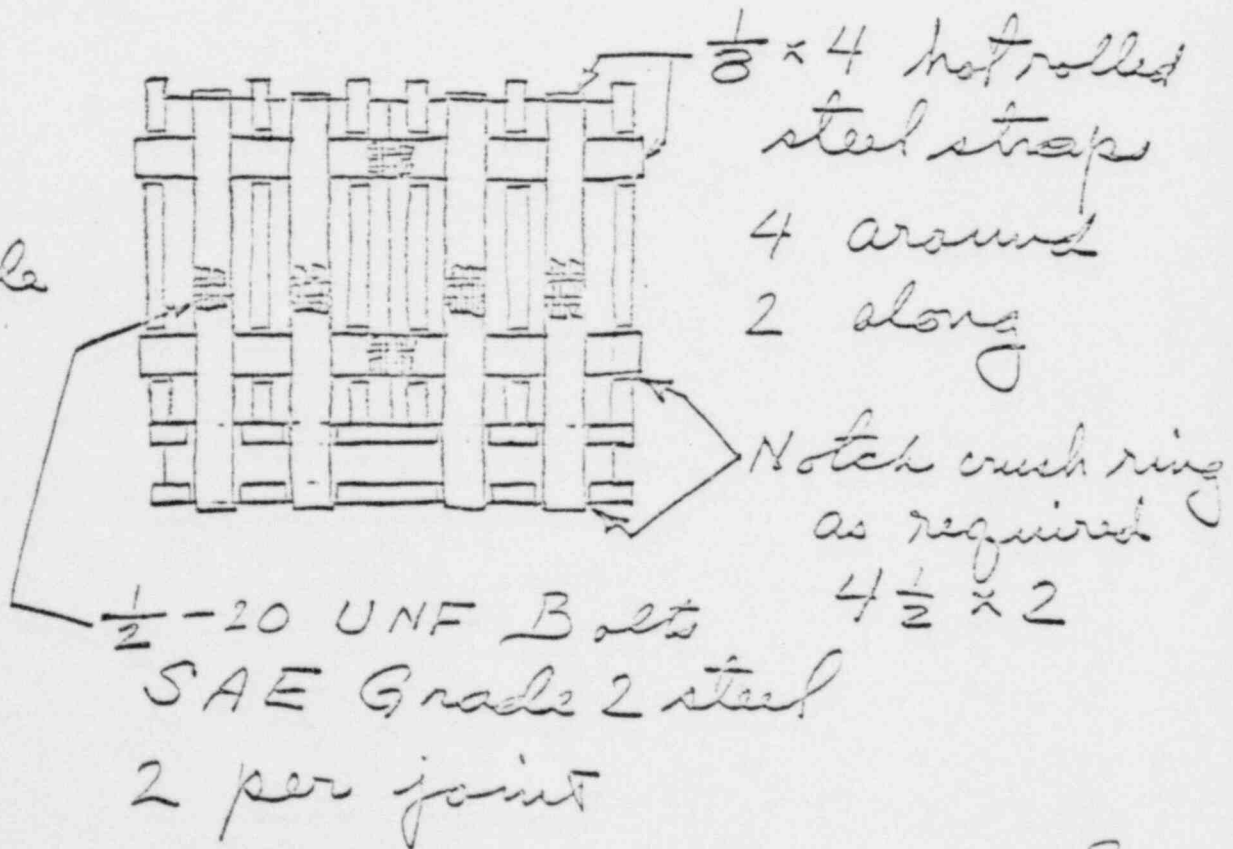 1/8 × 4 hot rolled
steel strap
4 around
2 along
Notch crush ring
as required
4 1/2 × 2
1/2 -20 UNF Bolts
SAE Grade 2 steel
2 per joint